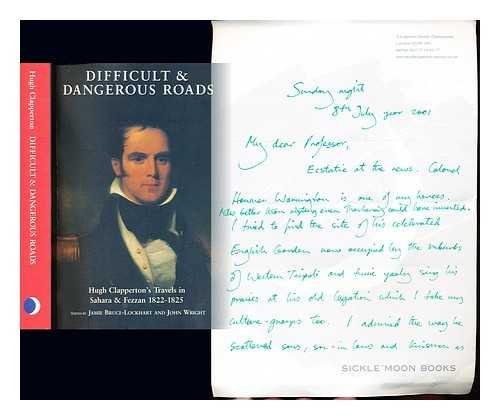 Hugh Clapperton DIFFICULT & DANGEROUS ROADS
DIFFICULT &
DANGEROUS ROADS
Hugh Clapperton's Travels in
Sahara & Fezzan 1822-1825
EDITED BY JAMIE BRUCE-LOCKHART AND JOHN WRIGHT
Sunday night
8th July year 2001
My dear Professor,
Ecstatic at the news. Colonel
Hanmer Warrington is one of my heroes.
better than even could have invented.
I tried to find the site of his celebrated
English Garden now occupied by the suburbs
of Western Tripoli and twice yearly sing his
praises at his old legation which I take my
culture-groups too. I admired the way he
scattered sons, son-in laws and kinsmen as
SICKLE MOON BOOKS